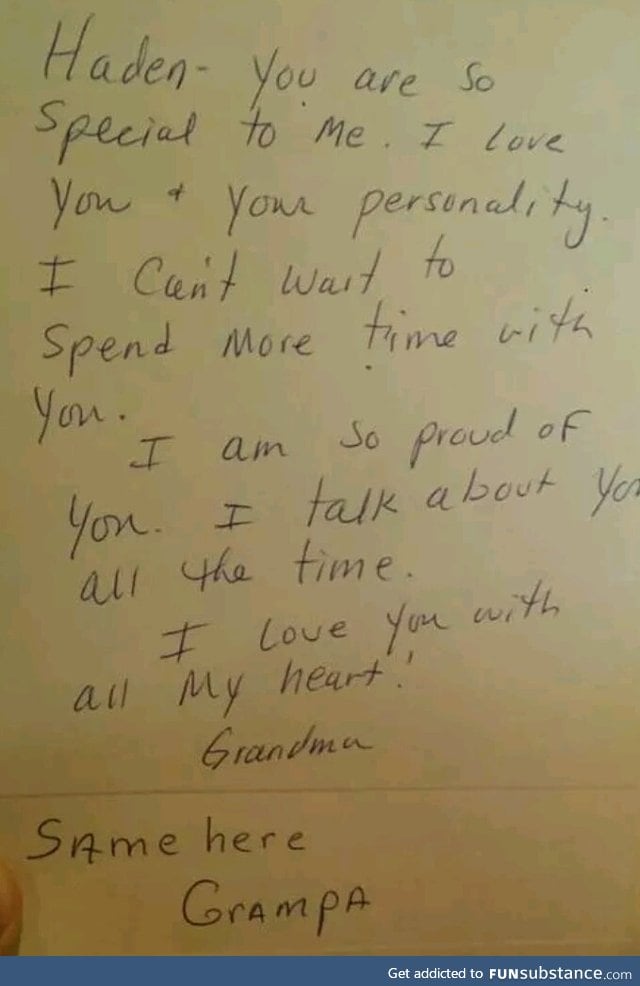 Haden- You are so
special to Me. I love
You + Your personality.
I Can't Wait to
Spend More time with
You.
I am so proud of
You. I talk about You
all the time.
I love you with
all My heart!
Grandma
Same here
Grampa
Get addicted to FUNsubstance.com